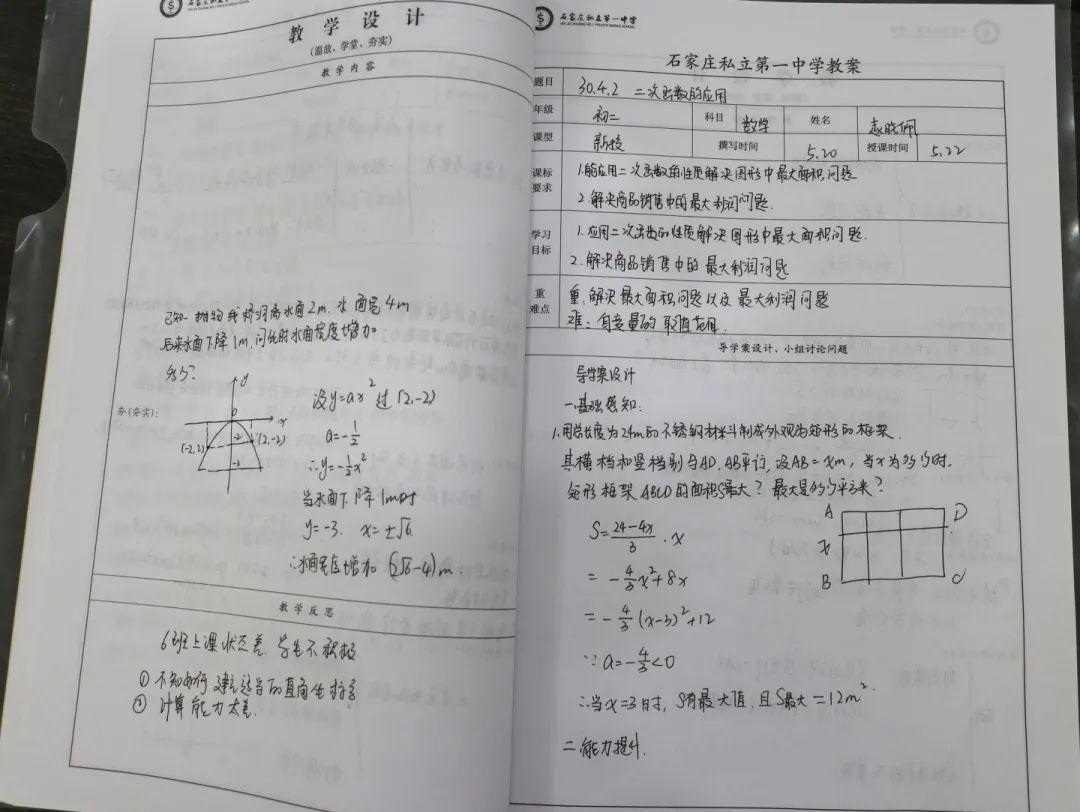 石家庄私立第一中学
教学设计
(温故、学堂、夯实)
教学内容
已知一抛物线桥洞离水面2m,水面宽4m
后来水面下降1m,问此时水面宽度增加
多少?
夯(夯实):
y
0
x
-2
(2,-2)
(-2,2)
-3
设y=ax² 过(2,-2)
a=-1/2
∴y=-1/2x²
当水面下降1m时
y=-3. x=±√6
∴水面宽度增加(2√6-4)m.
教学反思
6班上课状态差,学生不积极
① 不知如何建立适当的直角坐标系
② 计算能力太差.
石家庄私立第一中学
石家庄私立第一中学教案
题目 30.4.2 二次函数的应用
年级 初二 科目 数学 姓名 赵晓佩
课型 新授 撰写时间 5.20 授课时间 5.22
课标要求
1.能应用二次函数的性质解决图形中最大面积问题
2.解决商品销售中的最大利润问题.
学习目标
1.应用二次函数的性质解决图形中最大面积问题.
2.解决商品销售中的最大利润问题
重难点
重:解决最大面积问题以及最大利润问题
难:自变量的取值范围.
导学案设计、小组讨论问题
导学案设计
一.基础感知:
1.用总长度为24m的不锈钢材料制成外观为矩形的框架.
其横档和竖档别与AD.AB平行,设AB=xm,当x为多少时.
矩形框架ABCD的面积S最大?最大是多少平方米?
A D
x
B C
S=(24-4x)/3·x
=-4/3x²+8x
=-4/3(x-3)²+12
∵a=-4/3<0
∴当x=3时,S有最大值,且S最大=12m².
二.能力提升.